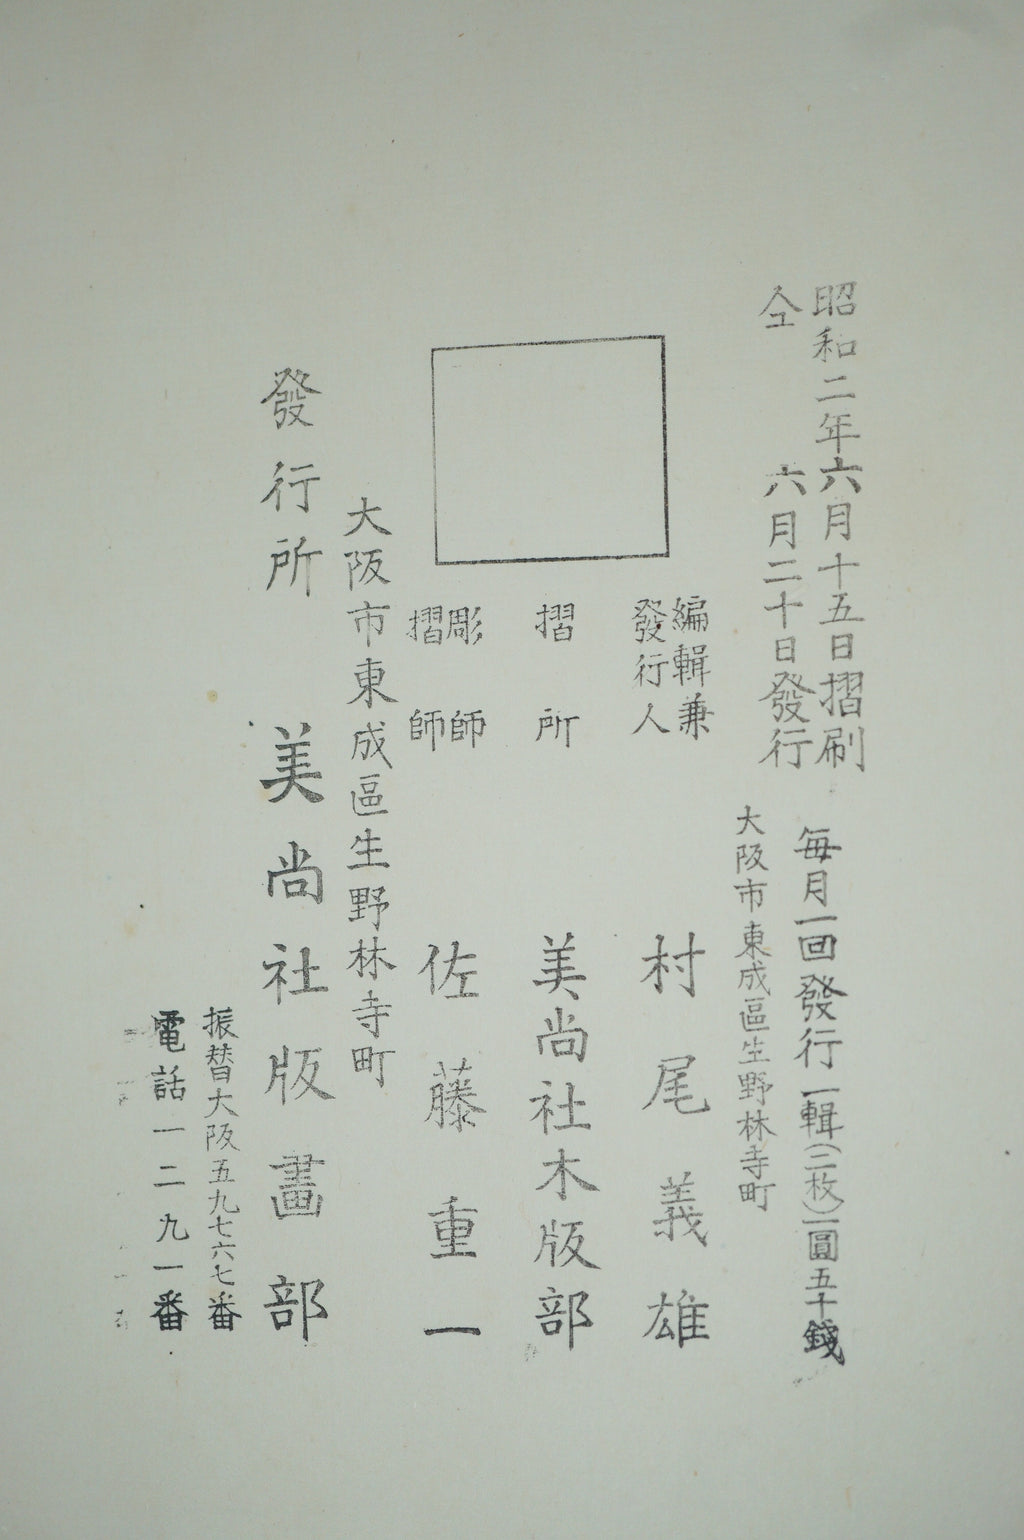 昭和二年六月十五日摺刷
仝　六月二十日發行
毎月一回發行一輯(二枚)一圓五十錢
大阪市東成區生野林寺町
編輯兼
發行人
村尾義雄
摺所　美尚社木版部
彫師
摺師
佐藤重一
大阪市東成區生野林寺町
發行所　美尚社版畫部
振替大阪五九七六七番
電話一二九一番